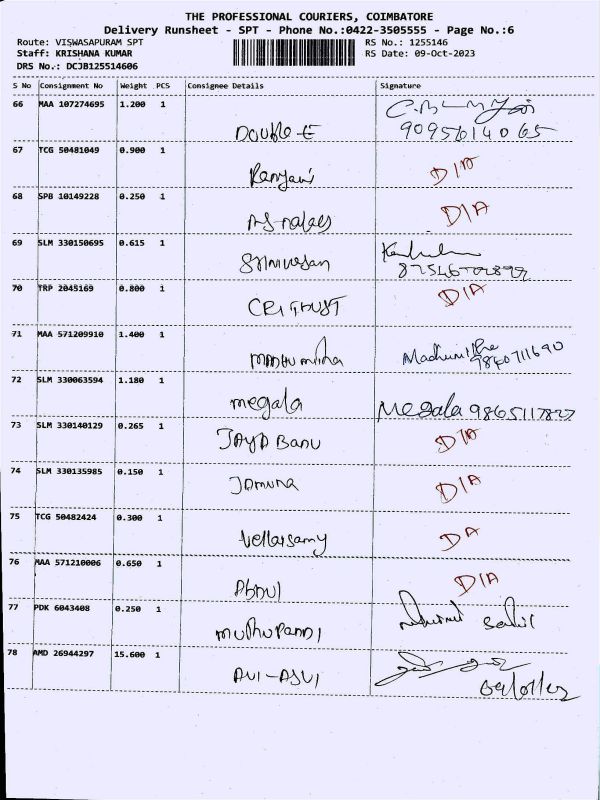 THE PROFESSIONAL COURIERS, COIMBATORE
Delivery Runsheet - SPT - Phone No.:0422-3505555 - Page No.:6
Route: VISWASAPURAM SPT RS No.: 1255146
Staff: KRISHANA KUMAR RS Date: 09-Oct-2023
DRS No.: DCJB125514606
S No Consignment No Weight PCS Consignee Details Signature
66 MAA 107274695 1.200 1
Double-E 9095614065
67 TCG 50481049 0.900 1
Ranjani D/A
68 SPB 10149228 0.250 1
D/A
69 SLM 330150695 0.615 1
Srinivasan
70 TRP 2045169 0.800 1
CRI TRUST D/A
71 MAA 571209910 1.400 1
Madhumitha Madhumitha
9840711690
72 SLM 330063594 1.180 1
megala Megala 9865117827
73 SLM 330140129 0.265 1
JAYA BANU D/A
74 SLM 330135985 0.150 1
Jamuna D/A
75 TCG 50482424 0.300 1
Vellaisamy DA
76 MAA 571210006 0.650 1
Abdul D/A
77 PDK 6043408 0.250 1
muthupandi
78 AMD 26944297 15.600 1
AVI-ASVI